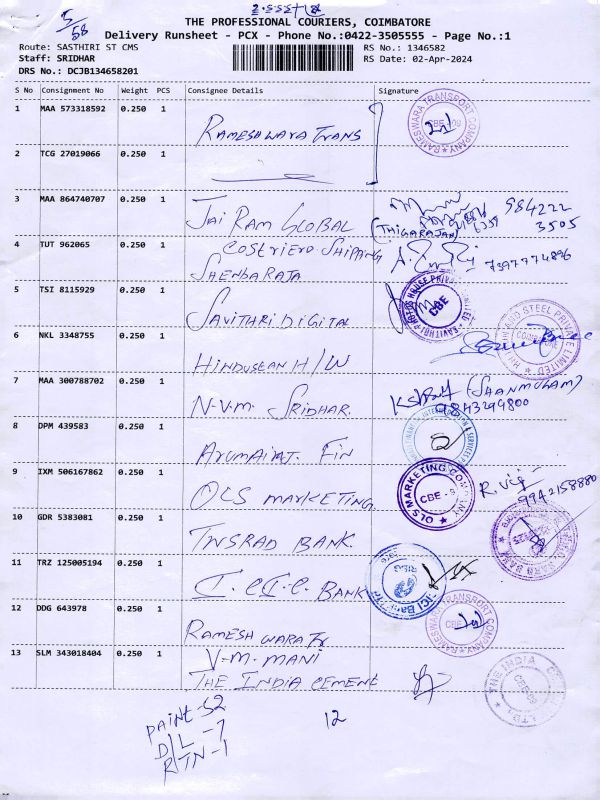 5/58
THE PROFESSIONAL COURIERS, COIMBATORE
Delivery Runsheet - PCX - Phone No.:0422-3505555 - Page No.:1
Route: SASTHIRI ST CMS
RS No.: 1346582
Staff: SRIDHAR
RS Date: 02-Apr-2024
DRS No.: DCJB134658201
S No Consignment No Weight PCS Consignee Details Signature
1 MAA 573318592 0.250 1
RAMESHWARA TRANS
RAMESWARA TRANSPORT COMPANY
2 TCG 27019066 0.250 1
3 MAA 864740707 0.250 1
JAI RAM GLOBAL
(THIGARAJAN)
984222
3505
4 TUT 962065 0.250 1
SHIPPING
SHENBARAJA
7397774876
5 TSI 8115929 0.250 1
SAVITHRI DIGITAL
CBE
6 NKL 3348755 0.250 1
HINDUSLAN H/W
7 MAA 300788702 0.250 1
N.V.M. SRIDHAR.
(SHANMUGAM)
9843299800
8 DPM 439583 0.250 1
ARUMAIRAJ. FIN
9 IXM 506167862 0.250 1
OLS MARKETING
OLS MARKETING COMPANY
CBE - 9
9942158880
10 GDR 5383081 0.250 1
TNSRAD BANK.
11 TRZ 125005194 0.250 1
I.C.I.C. BANK
12 DDG 643978 0.250 1
RAMESHWARA Tr
RAMESWARA TRANSPORT COMPANY
13 SLM 343018404 0.250 1
V-M-MANI
THE INDIA CEMENT
PAINT-52
D/L -7
RTN-1
12